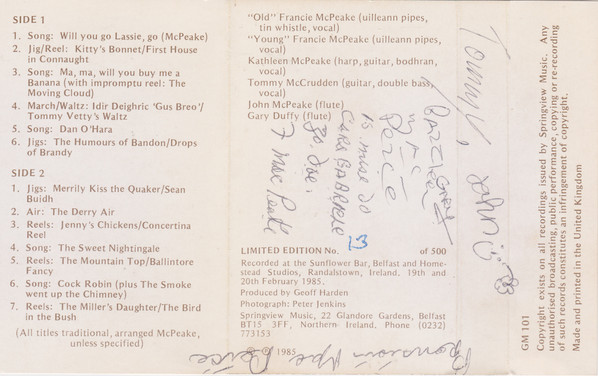 SIDE 1
1. Song: Will you go Lassie, go (McPeake)
2. Jig/Reel: Kitty's Bonnet/First House
in Connaught
3. Song: Ma, ma, will you buy me a
Banana (with impromptu reel: The
Moving Cloud)
4. March/Waltz: Idir Deighric 'Gus Breo'/
Tommy Vetty's Waltz
5. Song: Dan O'Hara
6. Jigs: The Humours of Bandon/Drops
of Brandy
SIDE 2
1. Jigs: Merrily Kiss the Quaker/Sean
Buidh
2. Air: The Derry Air
3. Reels: Jenny's Chicken/Concertina
Reel
4. Song: The Sweet Nightingale
5. Reels: The Mountain Top/Ballintore
Fancy
6. Song: Cock Robin (plus The Smoke
went up the Chimney)
7. Reels: The Miller's Daughter/The Bird
in the Bush
(All titles traditional, arranged McPeake,
unless specified)
"Old" Francie McPeake (uilleann pipes,
tin whistle, vocal)
"Young" Francie McPeake (uilleann pipes,
vocal)
Kathleen McPeake (harp, guitar, bodhran,
vocal)
Tommy McCrudden (guitar, double bass,
vocal)
John McPeake (flute)
Gary Duffy (flute)
is mise do
F Mac
LIMITED EDITION No. 13 of 500
Recorded at the Sunflower Bar, Belfast and Home-
stead Studios, Randalstown, Ireland. 19th and
20th February 1985.
Produced by Geoff Harden
Photograph: Peter Jenkins
Springview Music, 22 Glandore Gardens, Belfast
BT15 3FF, Northern Ireland. Phone (0232)
773153
1985
Tommy, John
GM 101
Copyright exists on all recordings issued by Springview Music. Any
unauthorised broadcasting, public performance, copying or re-recording
of such records constitutes an infringement of copyright.
Made and printed in the United Kingdom